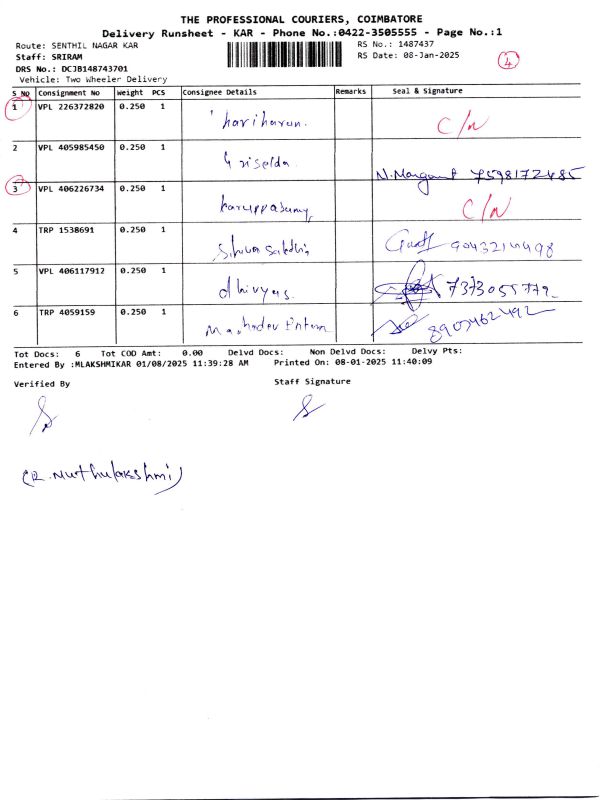 THE PROFESSIONAL COURIERS, COIMBATORE
Delivery Runsheet - KAR - Phone No.:0422-3505555 - Page No.:1
Route: SENTHIL NAGAR KAR RS No.: 1487437
Staff: SRIRAM RS Date: 08-Jan-2025 4
DRS No.: DCJB148743701
Vehicle: Two Wheeler Delivery
S No Consignment No Weight PCS Consignee Details Remarks Seal & Signature
1 VPL 226372820 0.250 1 hariharan. C/N
2 VPL 405985450 0.250 1 Griselda. 7598172485
3 VPL 406226734 0.250 1 karuppasamy, C/N
4 TRP 1538691 0.250 1
5 VPL 406117912 0.250 1 dhivyas. 7373055779
6 TRP 4059159 0.250 1 8903462492
Tot Docs: 6 Tot COD Amt: 0.00 Delvd Docs: Non Delvd Docs: Delvy Pts:
Entered By :MLAKSHMIKAR 01/08/2025 11:39:28 AM Printed On: 08-01-2025 11:40:09
Verified By Staff Signature
(R. Muthulakshmi)